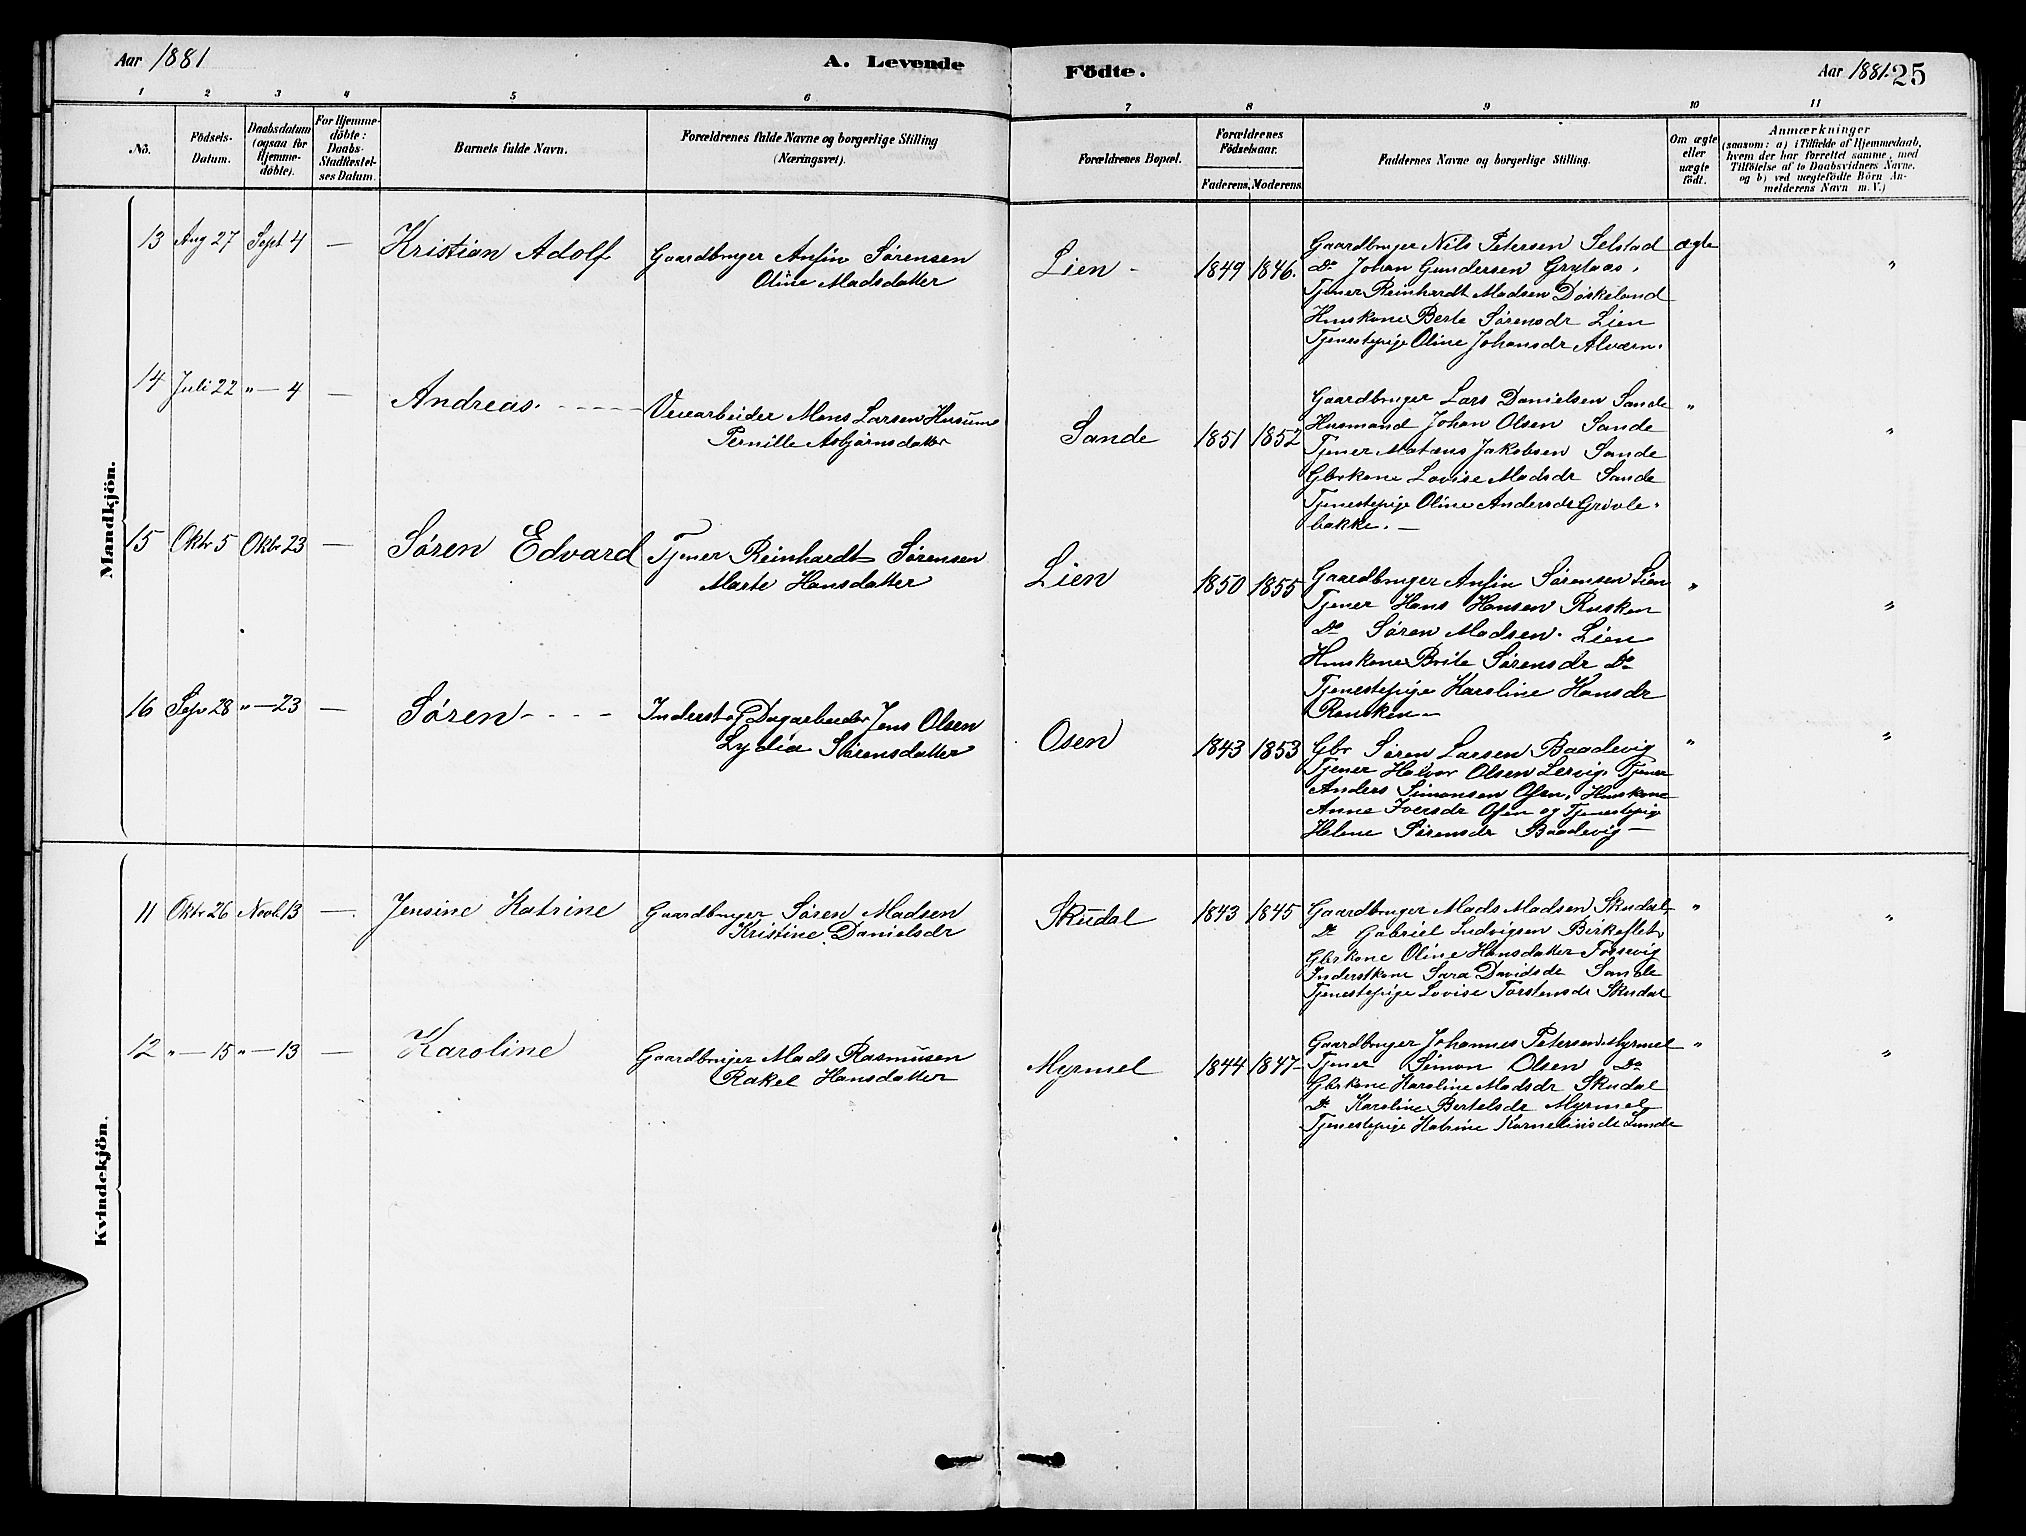 Aar 1881
A. Levende
Födte.
Aar 1881.
25
1 2 3 4 5 6 7 8 9 10 11
No.
Födsels-
Datum.
Daabsdatum
(ogsaa for
Hjemme-
döbte).
For Hjemme-
döbte:
Daabs-
Stadfæstel-
ses Datum.
Barnets fulde Navn.
Forældrenes fulde Navne og borgerlige Stilling
(Næringsvei).
Forældrenes Bopæl.
Forældrenes
Födselsaar.
Faderens. Moderens.
Faddernes Navne og borgerlige Stilling.
Om ægte
eller
uægte
födt.
Anmærkninger
(saasom: a) i Tilfælde af Hjemmedaab,
hvem der har forrettet samme, med
Tilföielse af to Daabsvidners Navne.
og b) ved uægtefödte Börn An-
melderens Navn m. V.)
Mandkjön.
13 Aug 27 Sept 4 — Kristian Adolf
Gaardbruger Anfin Sørensen
Oline Madsdatter
Lien - 1849 1846.
Gaardbruger Nils Petersen Selstad
Do Johan Gundersen Grytaas.
Tjener Reinhardt Madsen Døskeland
Huuskone Berte Sørensdr Lien
Tjenestepige Oline Johansdr Alværn.
ægte "
14 Juli 22 " — 4 — Andreas. - - - -
Veiarbeider Mons Larsen Husum
Pernille Asbjørnsdatter
Sande 1851 1852
Gaardbruger Lars Danielsen Sande
Husmand Johan Olsen Sande
Tjener Matæus Jakobsen Sande
Gbrkone Lovise Madsdr Sande
Tjenestepige Oline Andersdr Grøvle-
bakke. —
" "
15 Oktbr 5 Oktbr 23 — Søren Edvard
Tjener Reinhardt Sørensen
Marte Hansdatter
Lien 1850 1855
Gaardbruger Anfin Sørensen Lien
Tjener Hans Hansen Rusken
Do Søren Madsen. Lien
Huuskone Brite Sørensdr Do
Tjenestepige Karoline Hansdr
" "
16 Sepr 28 " — 23 — Søren - - - -
Inderst of Dagarbeider Jens Olsen
Lydia Sørensdatter
Osen 1843 1853
Gbr Søren Larsen Baadevig
Tjener Halvor Olsen Lervig. Tjener
Anders Simonsen Osen, Huuskone
Anne Iversdr Osen og Tjenestepig
Helene Sørensdr Baadevig —
" "
Kvindekjön.
11 Oktbr 26 Novb 13 — Jensine Katrine
Gaardbruger Søren Madsen
Kristine Danielsdr
Skudal 1843 1845
Gaardbruger Mads Madsen Skudal
Do Gabriel Ludvigsen Birkeflet
Gbrkone Oline Hansdatter Torsevig
Inderstkone Sara Davidsdr Sande
Tjenestepige Lovise Torstensdr Skudal
" "
12 " — 15 " — 13 — Karoline
Gaardbruger Mads Rasmusen
Rakel Hansdatter
Myrmel 1844 1847
Gaardbruger Johannes Petersen Myrmel
Tjener Simon Olsen Do
Gbrkone Karoline Madsdr Skudal
Do Karoline Bertelsdr Myrmel
Tjenestepige Katrine Korneliusdr Sande
" "